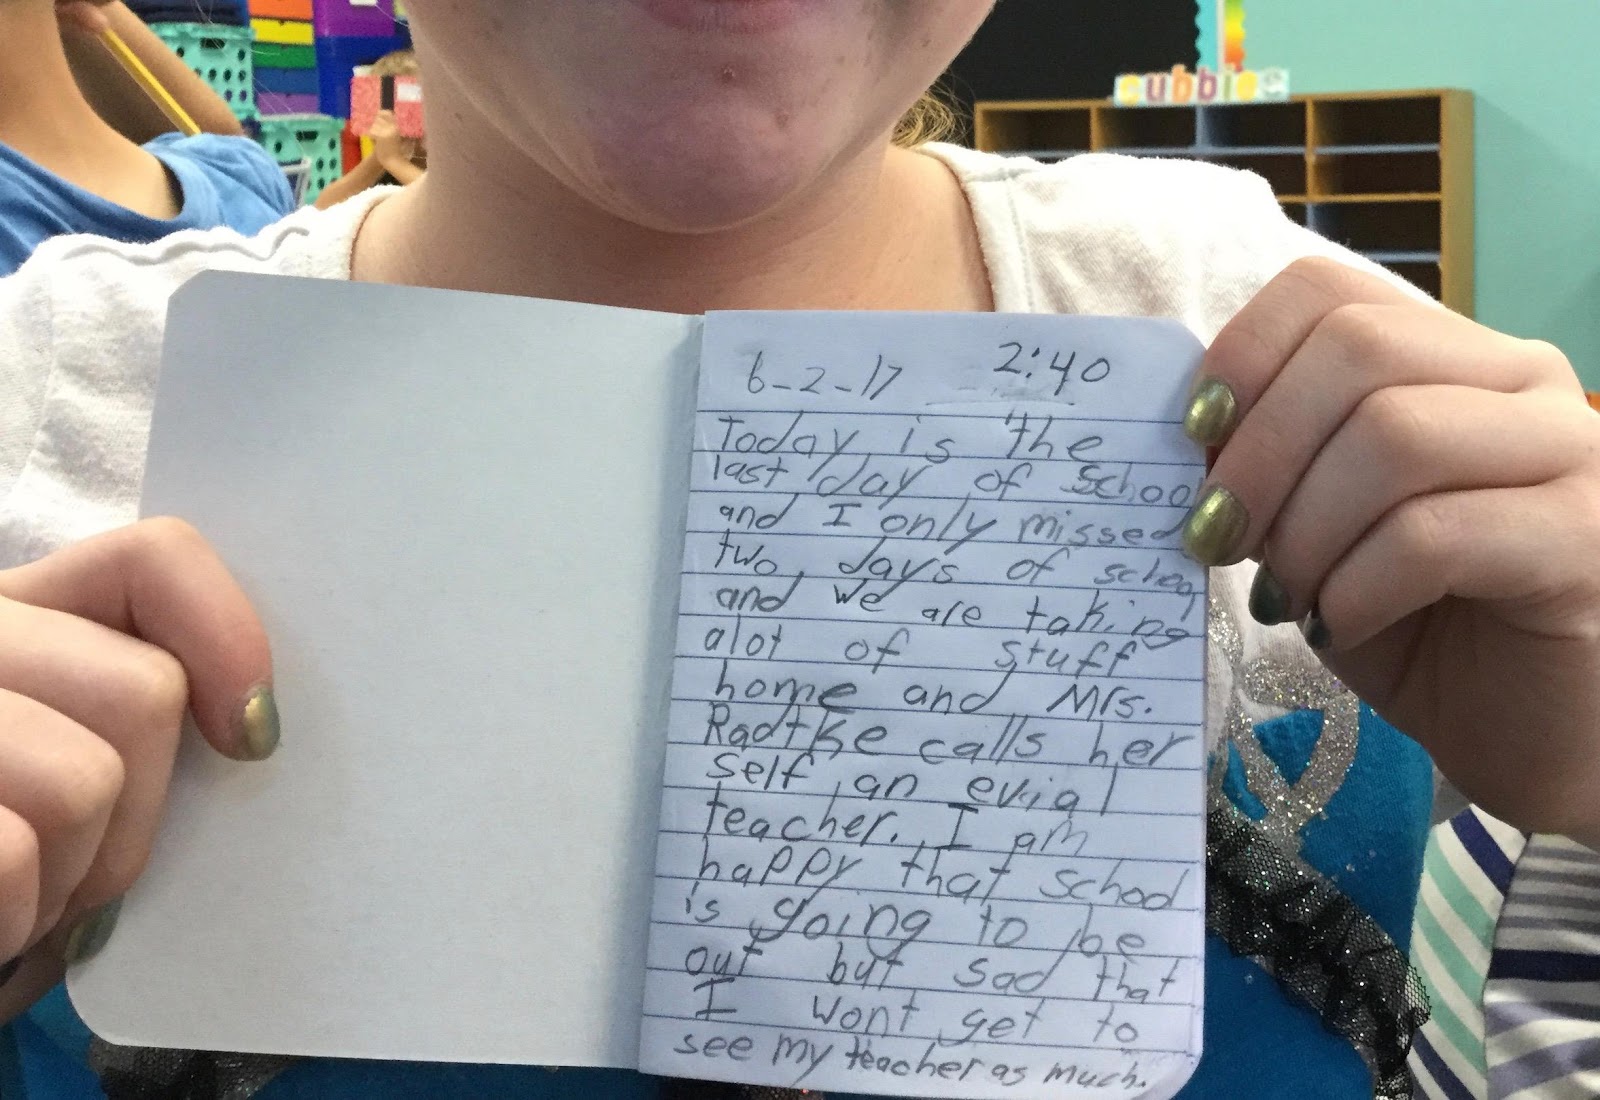 cubbies
6-2-17 2:40
Today is the
last day of school
and I only missed
two days of school
and we are taking
alot of stuff
home and Mrs.
Radtke calls her
self an evial
teacher. I am
happy that school
is going to be
out but sad that
I wont get to
see my teacher as much.